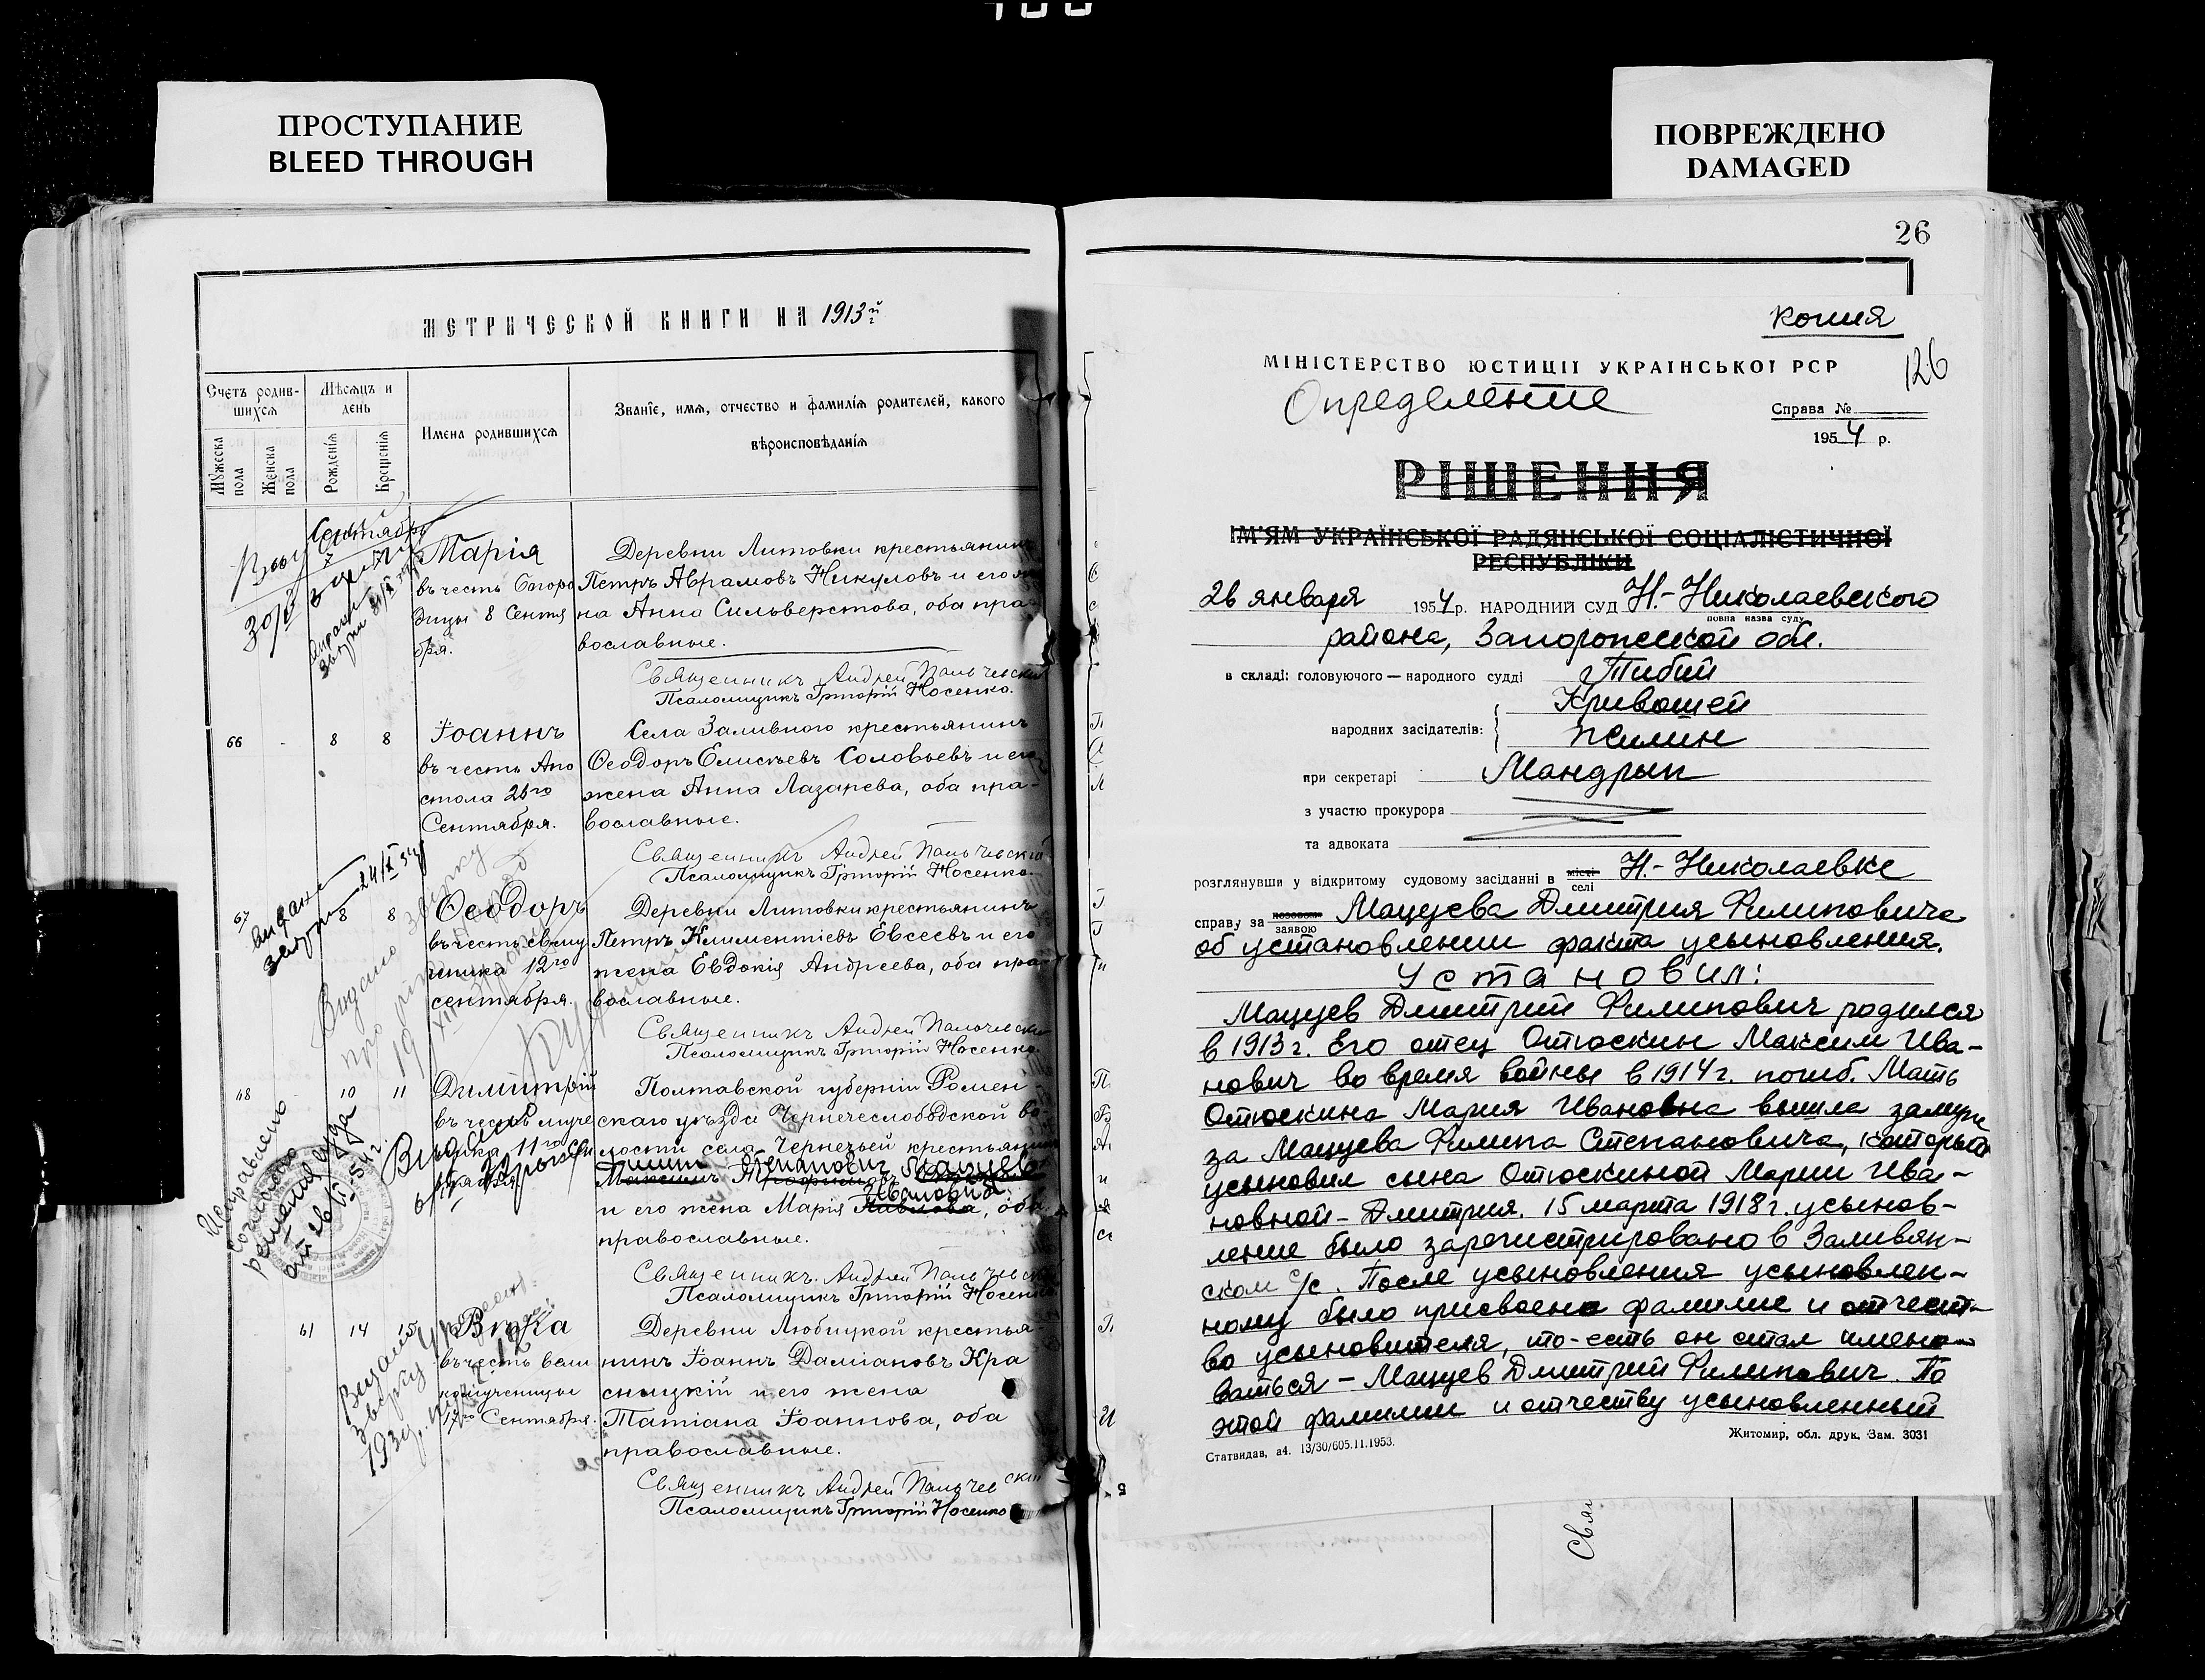 ПРОСТУПАНИЕ
BLEED THROUGH
ПОВРЕЖДЕНО
DAMAGED
МЕТРИЧЕСКОЙ КНИГИ НА 1913й г.
Счетъ родив-
шихся
Мѣсяцъ и
день
Имена родившихся
Званіе, имя, отчество и фамилія родителей, какого
вѣроисповѣданія
Мужеска
пола
Женска
пола
Рожденія
Крещенія
Сентябрь
7 7
Марія
въ честь Богоро
дицы 8 Сентя
бря.
Деревни Литовки крестьянинъ
Петръ Аврамовъ Никуловъ и его же
на Анна Сильверстова, оба пра-
вославные.
Священникъ Андрей
Псаломщикъ Григорій Носенко.
66 - 8 8
Іоаннъ
въ честь Апо
стола 26го
Сентября.
Села Заливного крестьянинъ
Ѳеодоръ Елисѣевъ Соловьевъ и его
жена Анна Лазарева, оба пра-
вославные.
Священникъ Андрей
Псаломщикъ Григорій Носенко.
67 8 8
Ѳеодоръ
въ честь свящ
нника 12го
сентября.
Деревни Литовки крестьянинъ
Петръ Климентіевъ Евсеевъ и его
жена Евдокія Андреева, оба пра-
вославные.
Священникъ Андрей
Псаломщикъ Григорій Носенко.
68 10 11
Димитрій
въ честь муче
ника 11го
Полтавской губерніи Ромен
скаго уѣзда Чернечеслободской во-
лости села Чернечьей крестьянинъ
Максимъ
Филипп Степанович Мацуев
Ивановна
и его жена Марія Павлова, оба
православные.
Священникъ Андрей
Псаломщикъ Григорій Носенко
Исправлено
согласно
решения суда
от 26/I-54 г.
- 61 14 15
Вѣра
въ честь вели
комученицы
17го Сентября.
Деревни Любицкой крестья-
нинъ Іоаннъ Даміановъ Кра
сницкій и его жена
Татіана Іоаннова, оба
православные.
Священникъ Андрей
Псаломщикъ Григорій Носенко
26
Копия
126
МІНІСТЕРСТВО ЮСТИЦІЇ УКРАЇНСЬКОЇ РСР
Определение
Справа №
1954 р.
РІШЕННЯ
ІМ'ЯМ УКРАЇНСЬКОЇ РАДЯНСЬКОЇ СОЦІАЛІСТИЧНОЇ
РЕСПУБЛІКИ
26 января 1954 р. НАРОДНИЙ СУД Н.-Николаевского
повна назва суду
района, Запорожской обл.
в складі: головуючого — народного судді Тибий
Кривошей
народних засідателів: Жилин
при секретарі Мандрык
з участю прокурора
та адвоката
розглянувши у відкритому судовому засіданні в місті селі Н.-Николаевке
справу за позовом заявою Мацуева Дмитрия Филиповича
об установлении факта усыновления.
Установил:
Мацуев Дмитрий Филипович родился
в 1913 г. Его отец Отюскин Максим Ива-
нович во время войны в 1914 г. погиб. Мать
Отюскина Мария Ивановна вышла замуж
за Мацуева Филипа Степановича, который
усыновил сына Отюскиной Марии Ива-
новной - Дмитрия. 15 марта 1918 г. усынов-
ление было зарегистрировано в Заливян-
ском с/с. После усыновления усыновлен-
ному было присвоено фамилие и отчест-
во усыновителя, то-есть он стал имено-
ваться - Мацуев Дмитрий Филипович. По
этой фамилии и отчеству усыновленный
Статвидав, а4. 13/30/605.11.1953.
Житомир, обл. друк. Зам. 3031